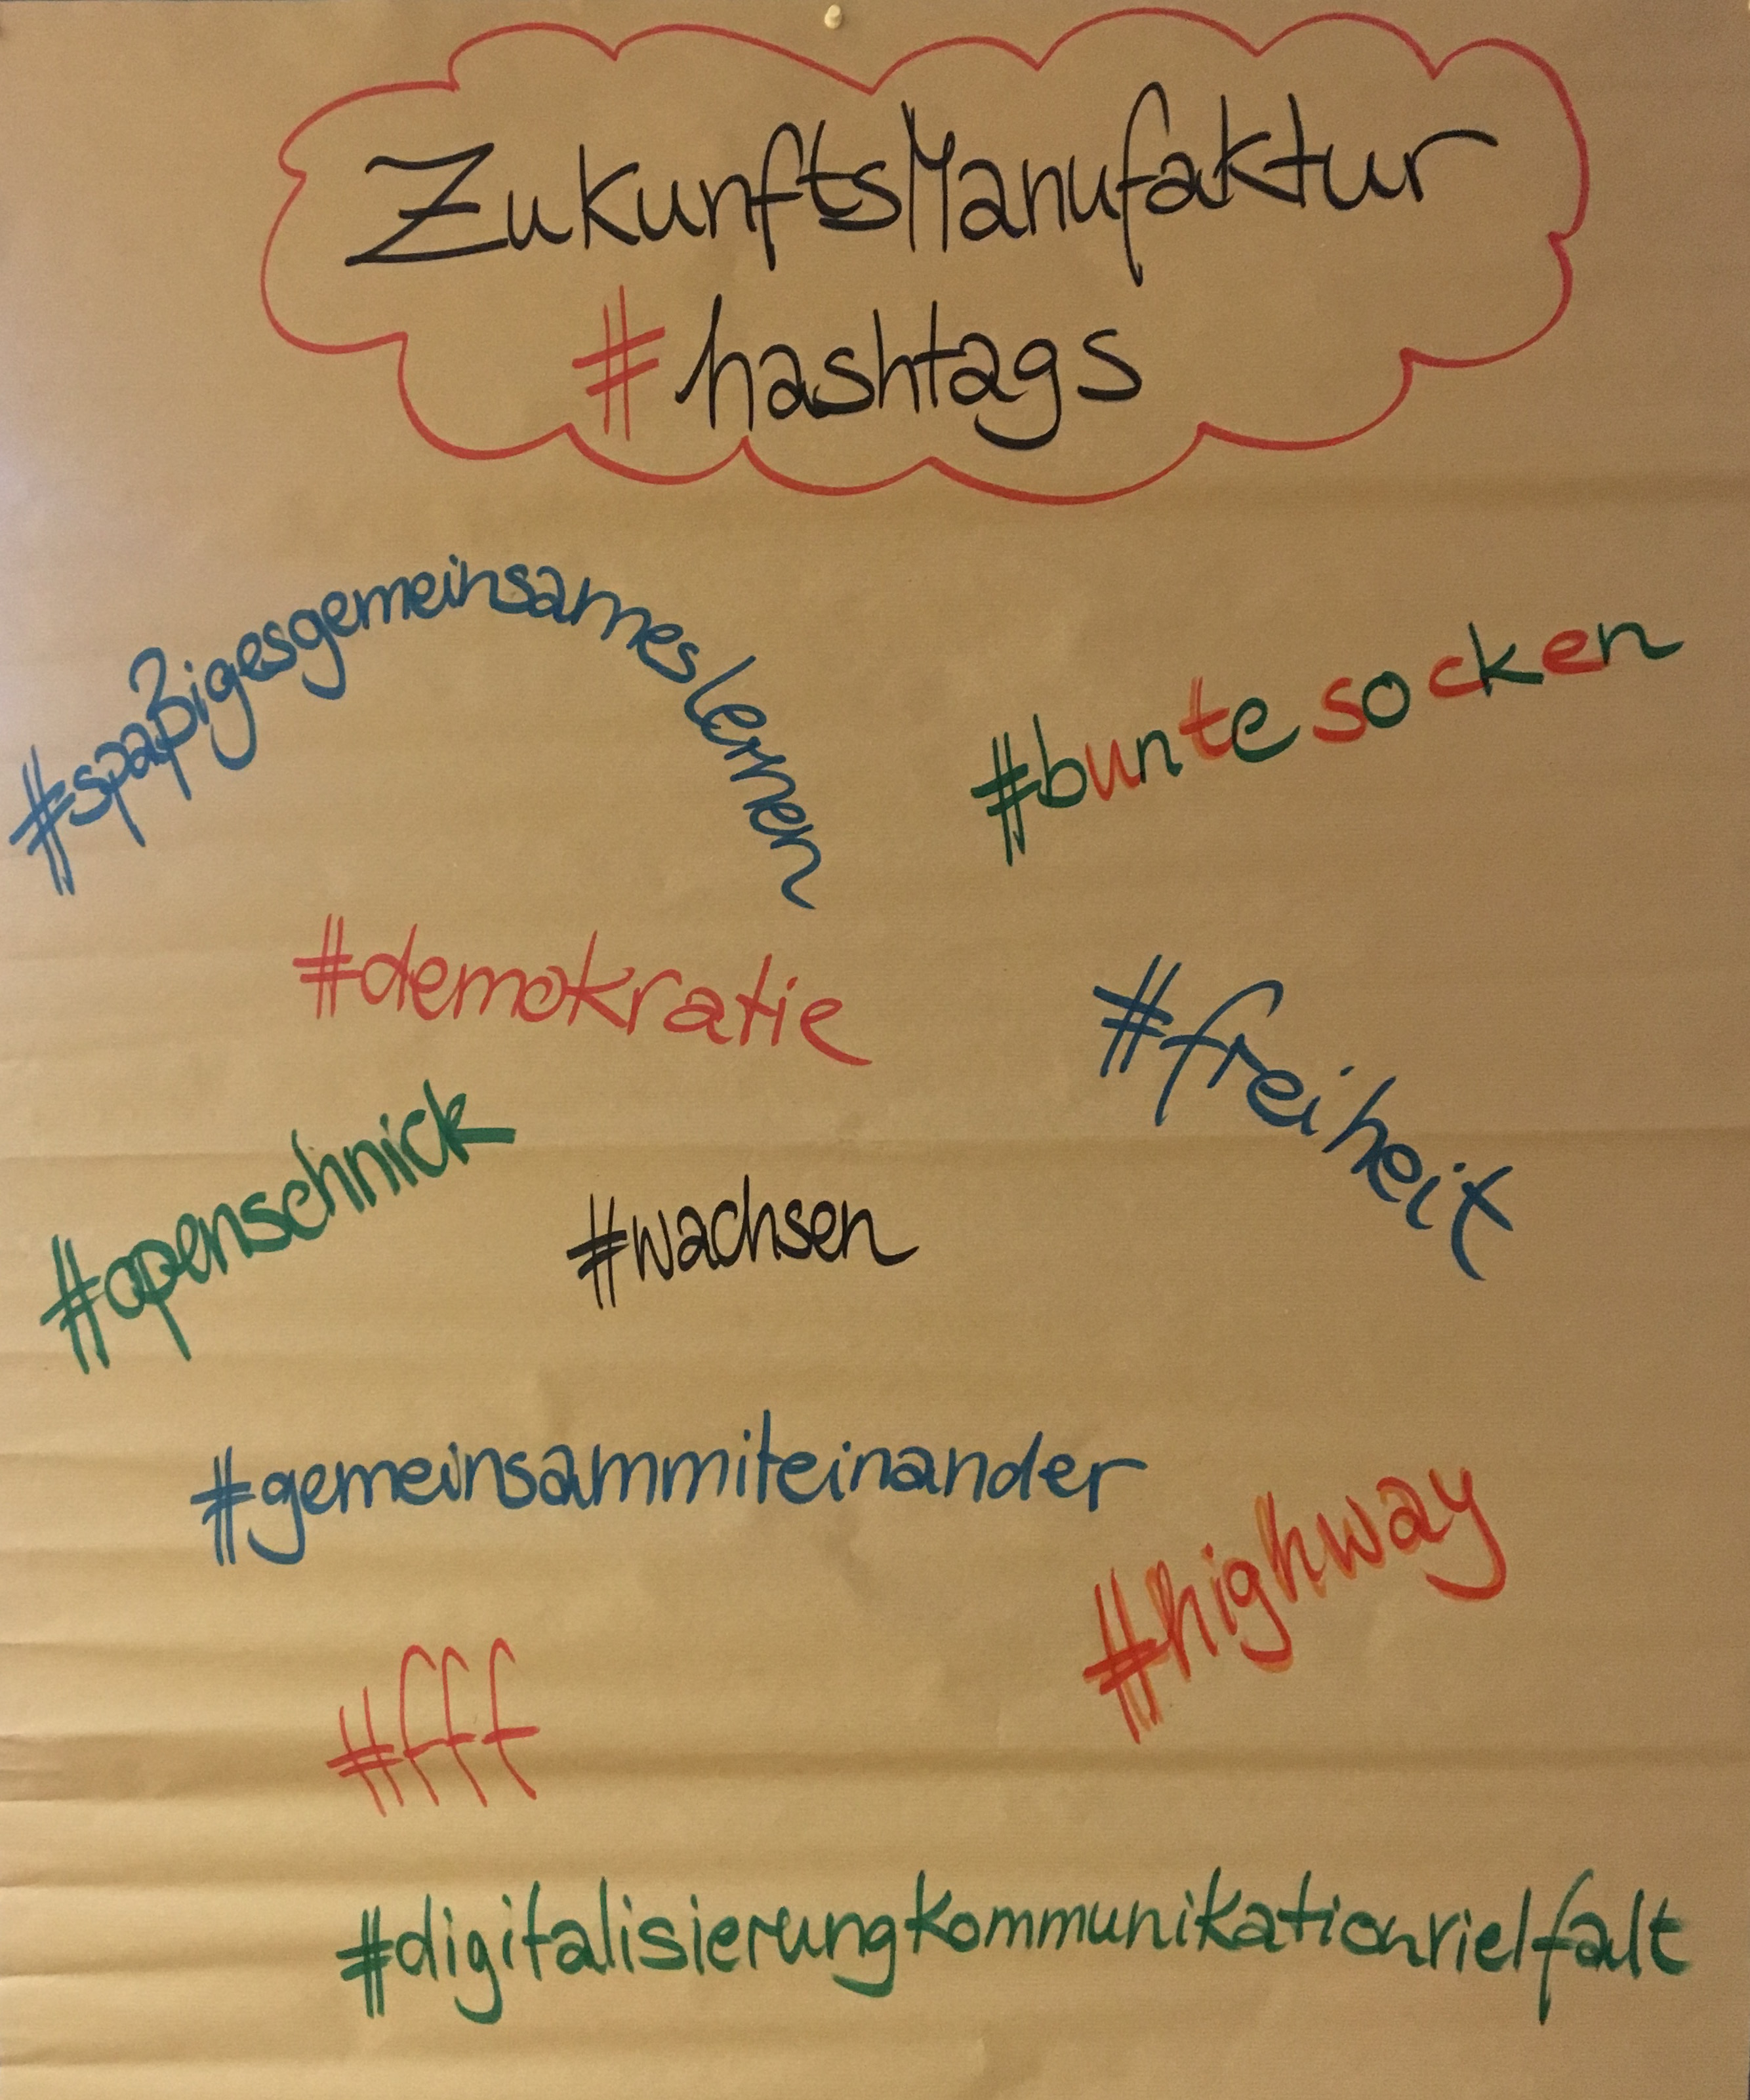 ZukunftsManufaktur
#hashtags
#spaßigesgemeinsameslernen
#buntesocken
#demokratie
#freiheit
#openschnick
#wachsen
#gemeinsammiteinander
#highway
#fff
#digitalisierungkommunikationvielfalt